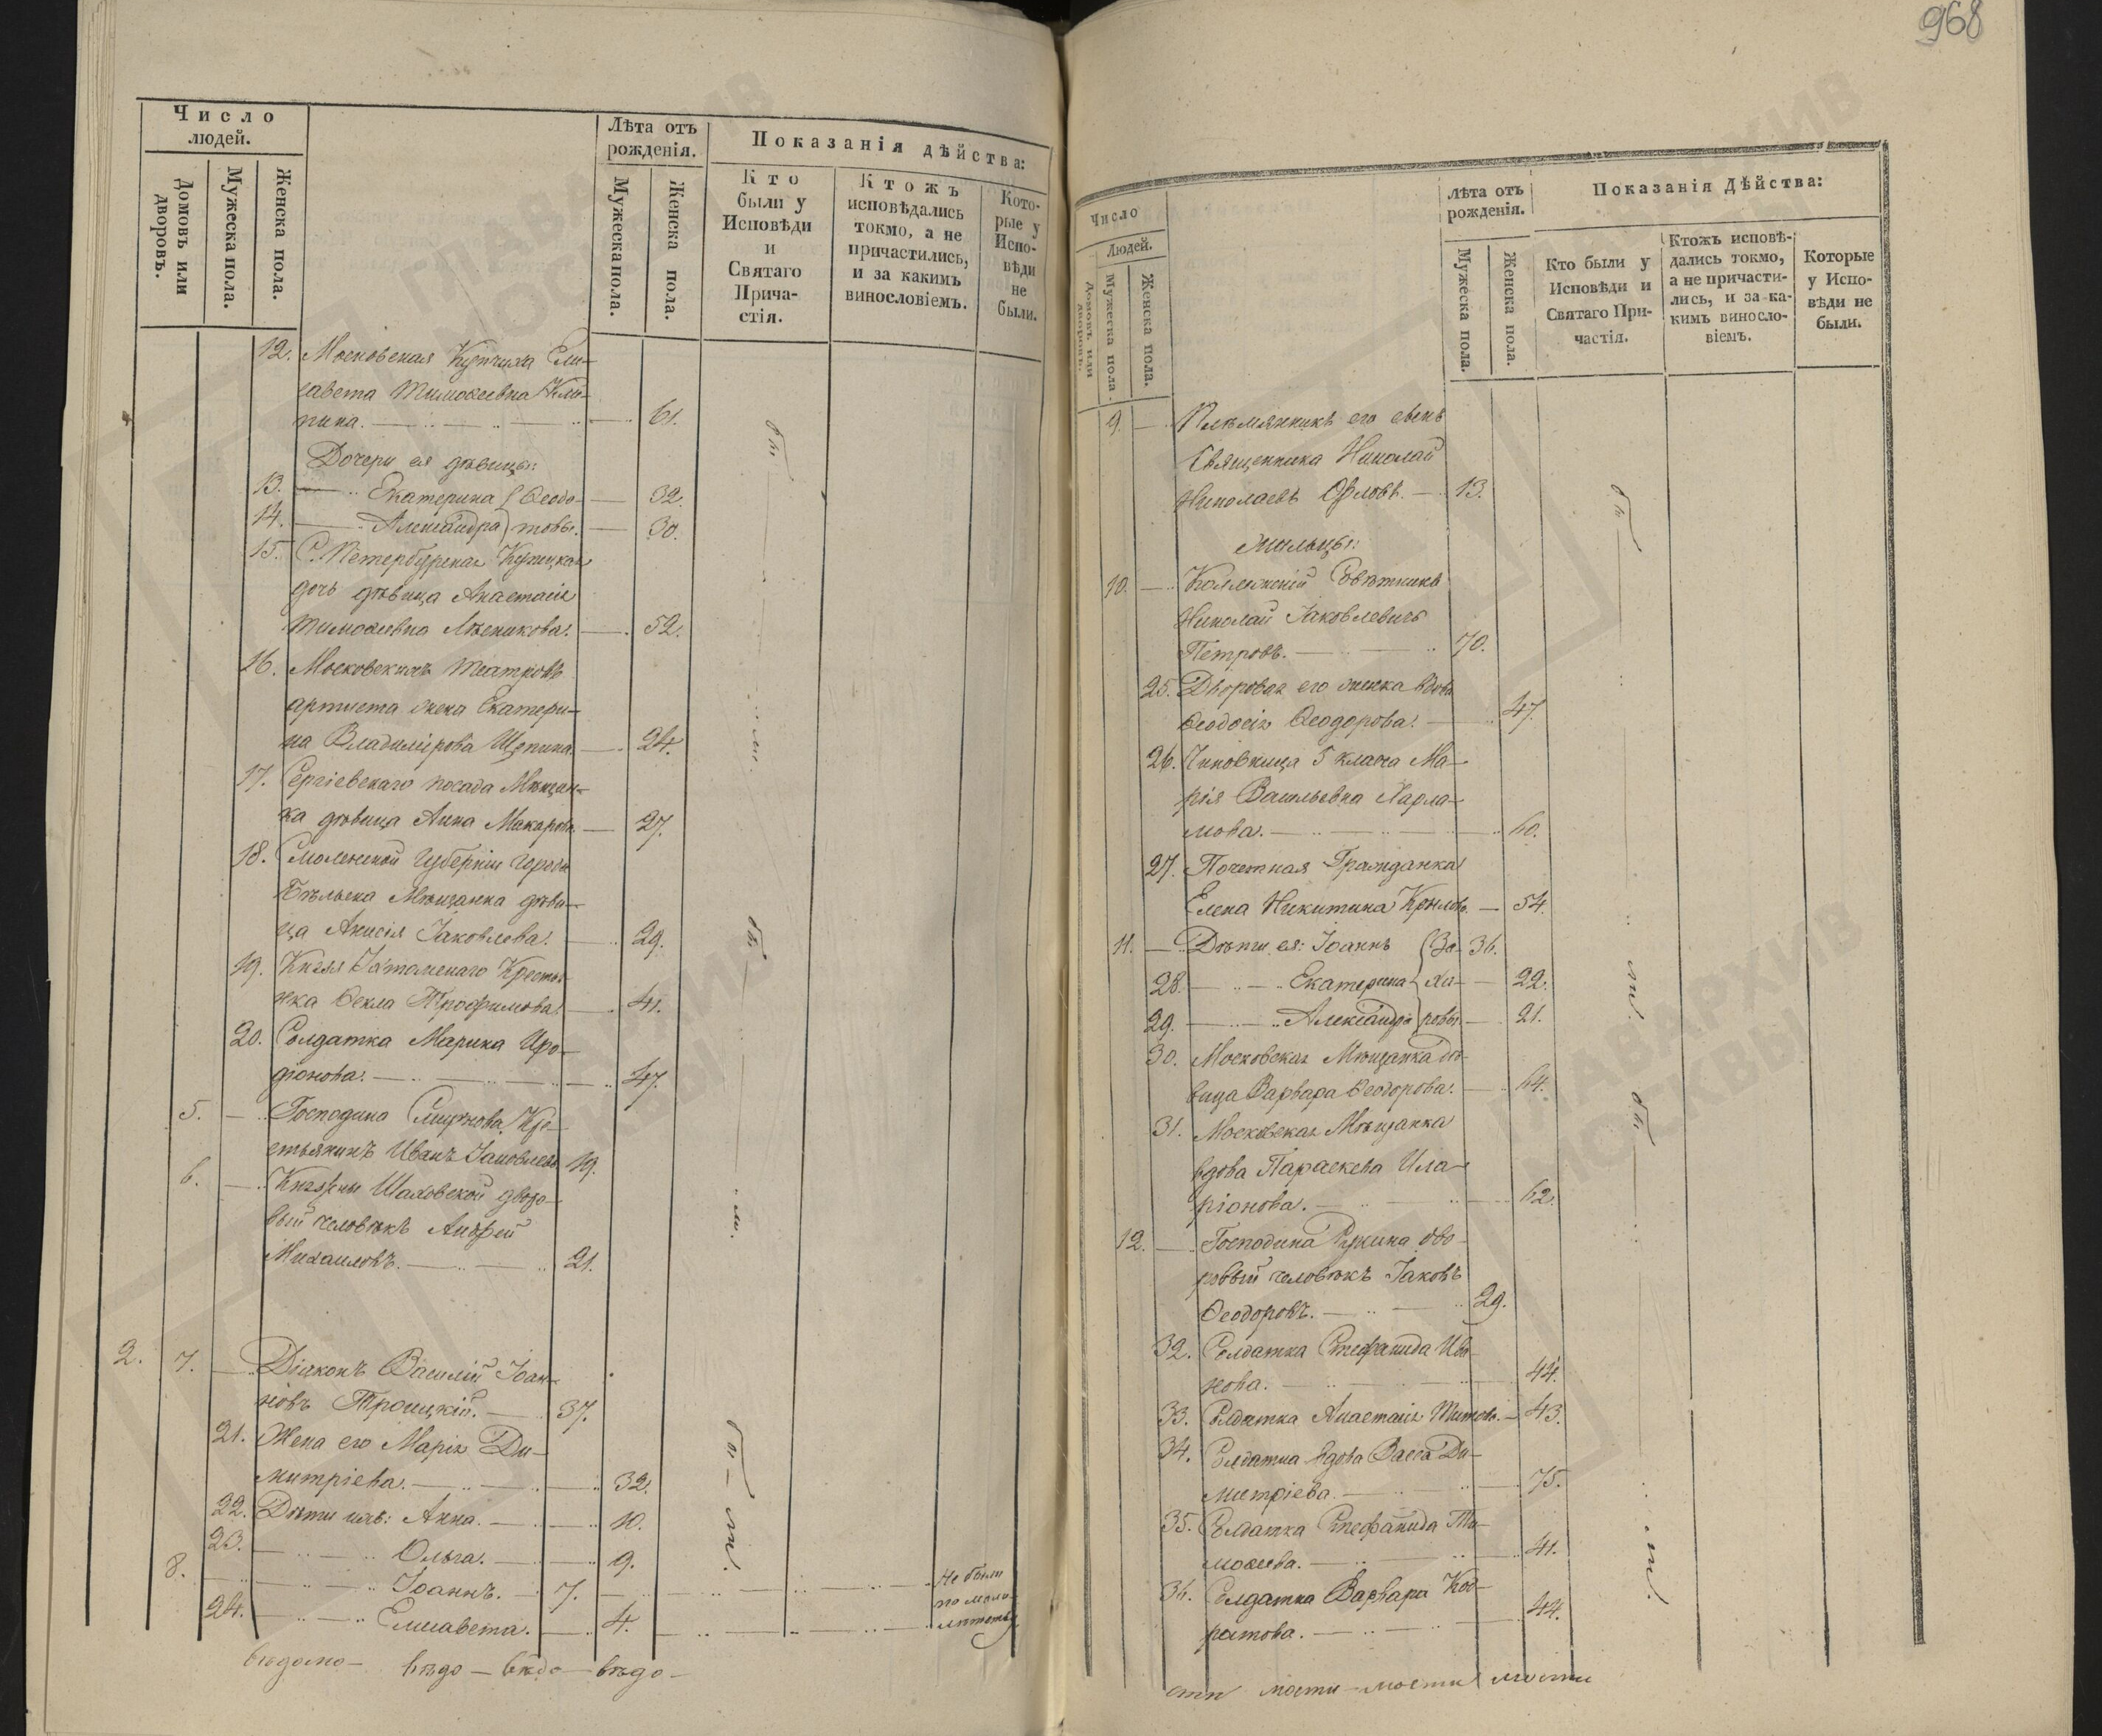 968
Число людей.
Домовъ или дворовъ.
Мужеска пола.
Женска пола.
Лѣта отъ рожденія.
Мужеска пола.
Женска пола.
Показанія дѣйства:
Кто были у Исповѣди и Святаго Прича-стія.
Ктожъ исповѣдались токмо, а не причастились, и за какимъ винословіемъ.
Кото-рые у Испо-вѣди не были.
12. Московская Купчиха Ели-
савета Тимоѳеевна
пина. 61.
Дочери ея дѣвицы:
13. Екатерина Ѳеодо- 32.
14. Александра товы. 30.
15. С. Петербурская Купецкая
дочь дѣвица Анастасія
Тимоѳеевна 52.
16. Московскихъ театровъ
артиста жена Екатери-
на Владимірова Щепина 24.
17. Сергіевскаго посада Мѣщан-
ка дѣвица Анна Макарова 27.
18. Смоленской Губерніи города
Бѣльска Мѣщанка дѣви-
ца Анисія Іаковлева. 29.
19. Князя Крестьян-
ка Ѳекла Трофимова. 41.
20. Солдатка Марина Иро-
діонова. 47.
5. Господина Смирнова Кре-
стьянинъ Иванъ Іаковлевъ 19.
6. Княжны Шаховской дворо-
вый человѣкъ Андрей
Михаиловъ. 21.
2. 7. Діаконъ Василій Іоан-
новъ Троицкій. 37.
21. Жена его Марія Ди-
митріева. 32.
22. Дѣти ихъ: Анна. 10.
23. Ольга. 9.
8. Іоаннъ. 7. Не были
по мало-
24. Елисавета. 4. лѣтству
бы - ли.
вѣдомо - вѣдо - вѣдо - вѣдо -
Число Людей.
Домовъ или дворовъ.
Мужеска пола.
Женска пола.
Лѣта отъ рожденія.
Мужеска пола.
Женска пола.
Показанія Дѣйства:
Кто были у Исповѣди и Святаго При-частія.
Ктожъ исповѣ-дались токмо, а не причасти-лись, и за ка-кимъ виносло-віемъ.
Которые у Испо-вѣди не были.
9. Племянникъ его сынъ
Священника Николай
Николаевъ Орловъ. 13.
Жильцы:
10. Коллежскій Совѣтникъ
Николай Іаковлевичъ
Петровъ. 70.
25. Дворовая его женка вдова
Ѳеодосія Ѳеодорова. 47.
26. Чиновница 5 класса Ма-
рія Васильевна Харла-
мова. 60.
27. Почетная Гражданка
Елена Никитина Крылова. 54.
11. Дѣти ея: Іоаннъ За- 36.
28. Екатерина ха- 22.
29. Александра ровы. 21.
30. Московская Мѣщанка дѣ-
вица Варвара Ѳеодорова. 64.
31. Московская Мѣщанка
вдова Параскева Ила-
ріонова. 62.
12. Господина дво-
ровый человѣкъ Іаковъ
Ѳеодоровъ. 29.
32. Солдатка Стефанида Ива-
нова. 44.
33. Солдатка Анастасія Титова. 43.
34. Солдатка вдова Васса Ди-
митріева. 75.
35. Солдатка Стефанида Ти-
моѳеева. 41.
36. Солдатка Варвара Код-
ратова. 44.
сти мости - мости мости